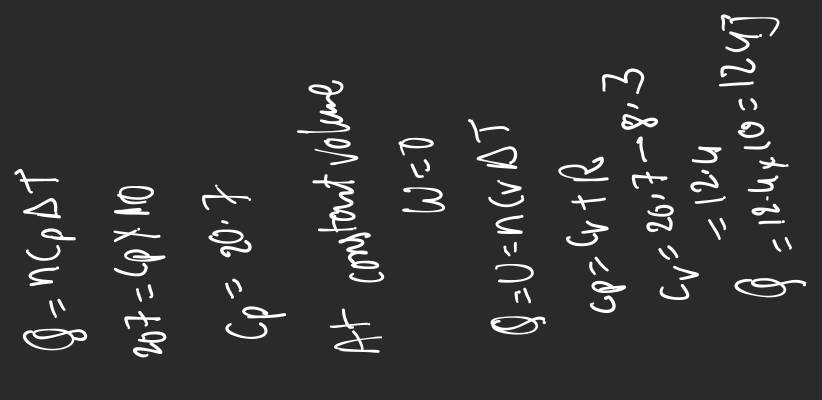 Q = nCpΔT
207 = Cp × 10
Cp = 20.7
At constant volume
W = 0
Q = U = nCvΔT
Cp = Cv + R
Cv = 20.7 - 8.3
= 12.4
Q = 12.4 × 10 = 124J